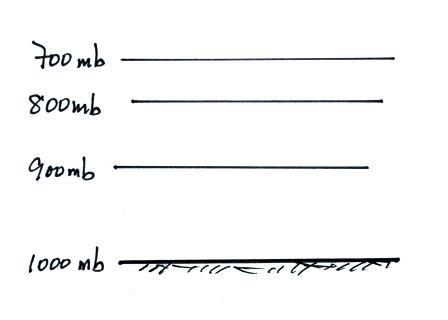 700 mb
800 mb
900 mb
1000 mb